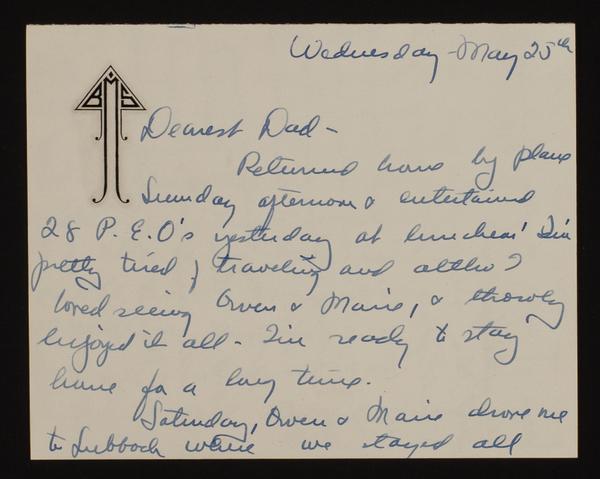 BMS
Wednesday - May 25th
Dearest Dad -
Returned home by plane
Sunday afternoon & entertained
28 P.E.O's yesterday at luncheon! I'm
pretty tired of traveling and altho I
loved seeing Owen & Marie, &
enjoyed it all - I'm ready to stay
home for a long time.
Saturday, Owen & Marie drove me
to Lubbock where we stayed all